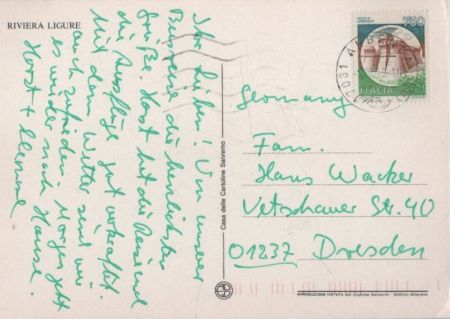 RIVIERA LIGURE
Ihr Lieben! Von unserer
Busreise die herzlichsten
Grüße. Horst hat die Reise und
die Ausflüge gut verkraftet.
Mit dem Wetter sind wir
auch zufrieden. Morgen geht
es wieder nach Hause.
Horst +
Casa della Cartolina Sanremo
750
ITALIA
17031
Germany
Fam.
Hans Wacker
Vetschauer Str. 40
01237 Dresden
RIPRODUZIONE VIETATA